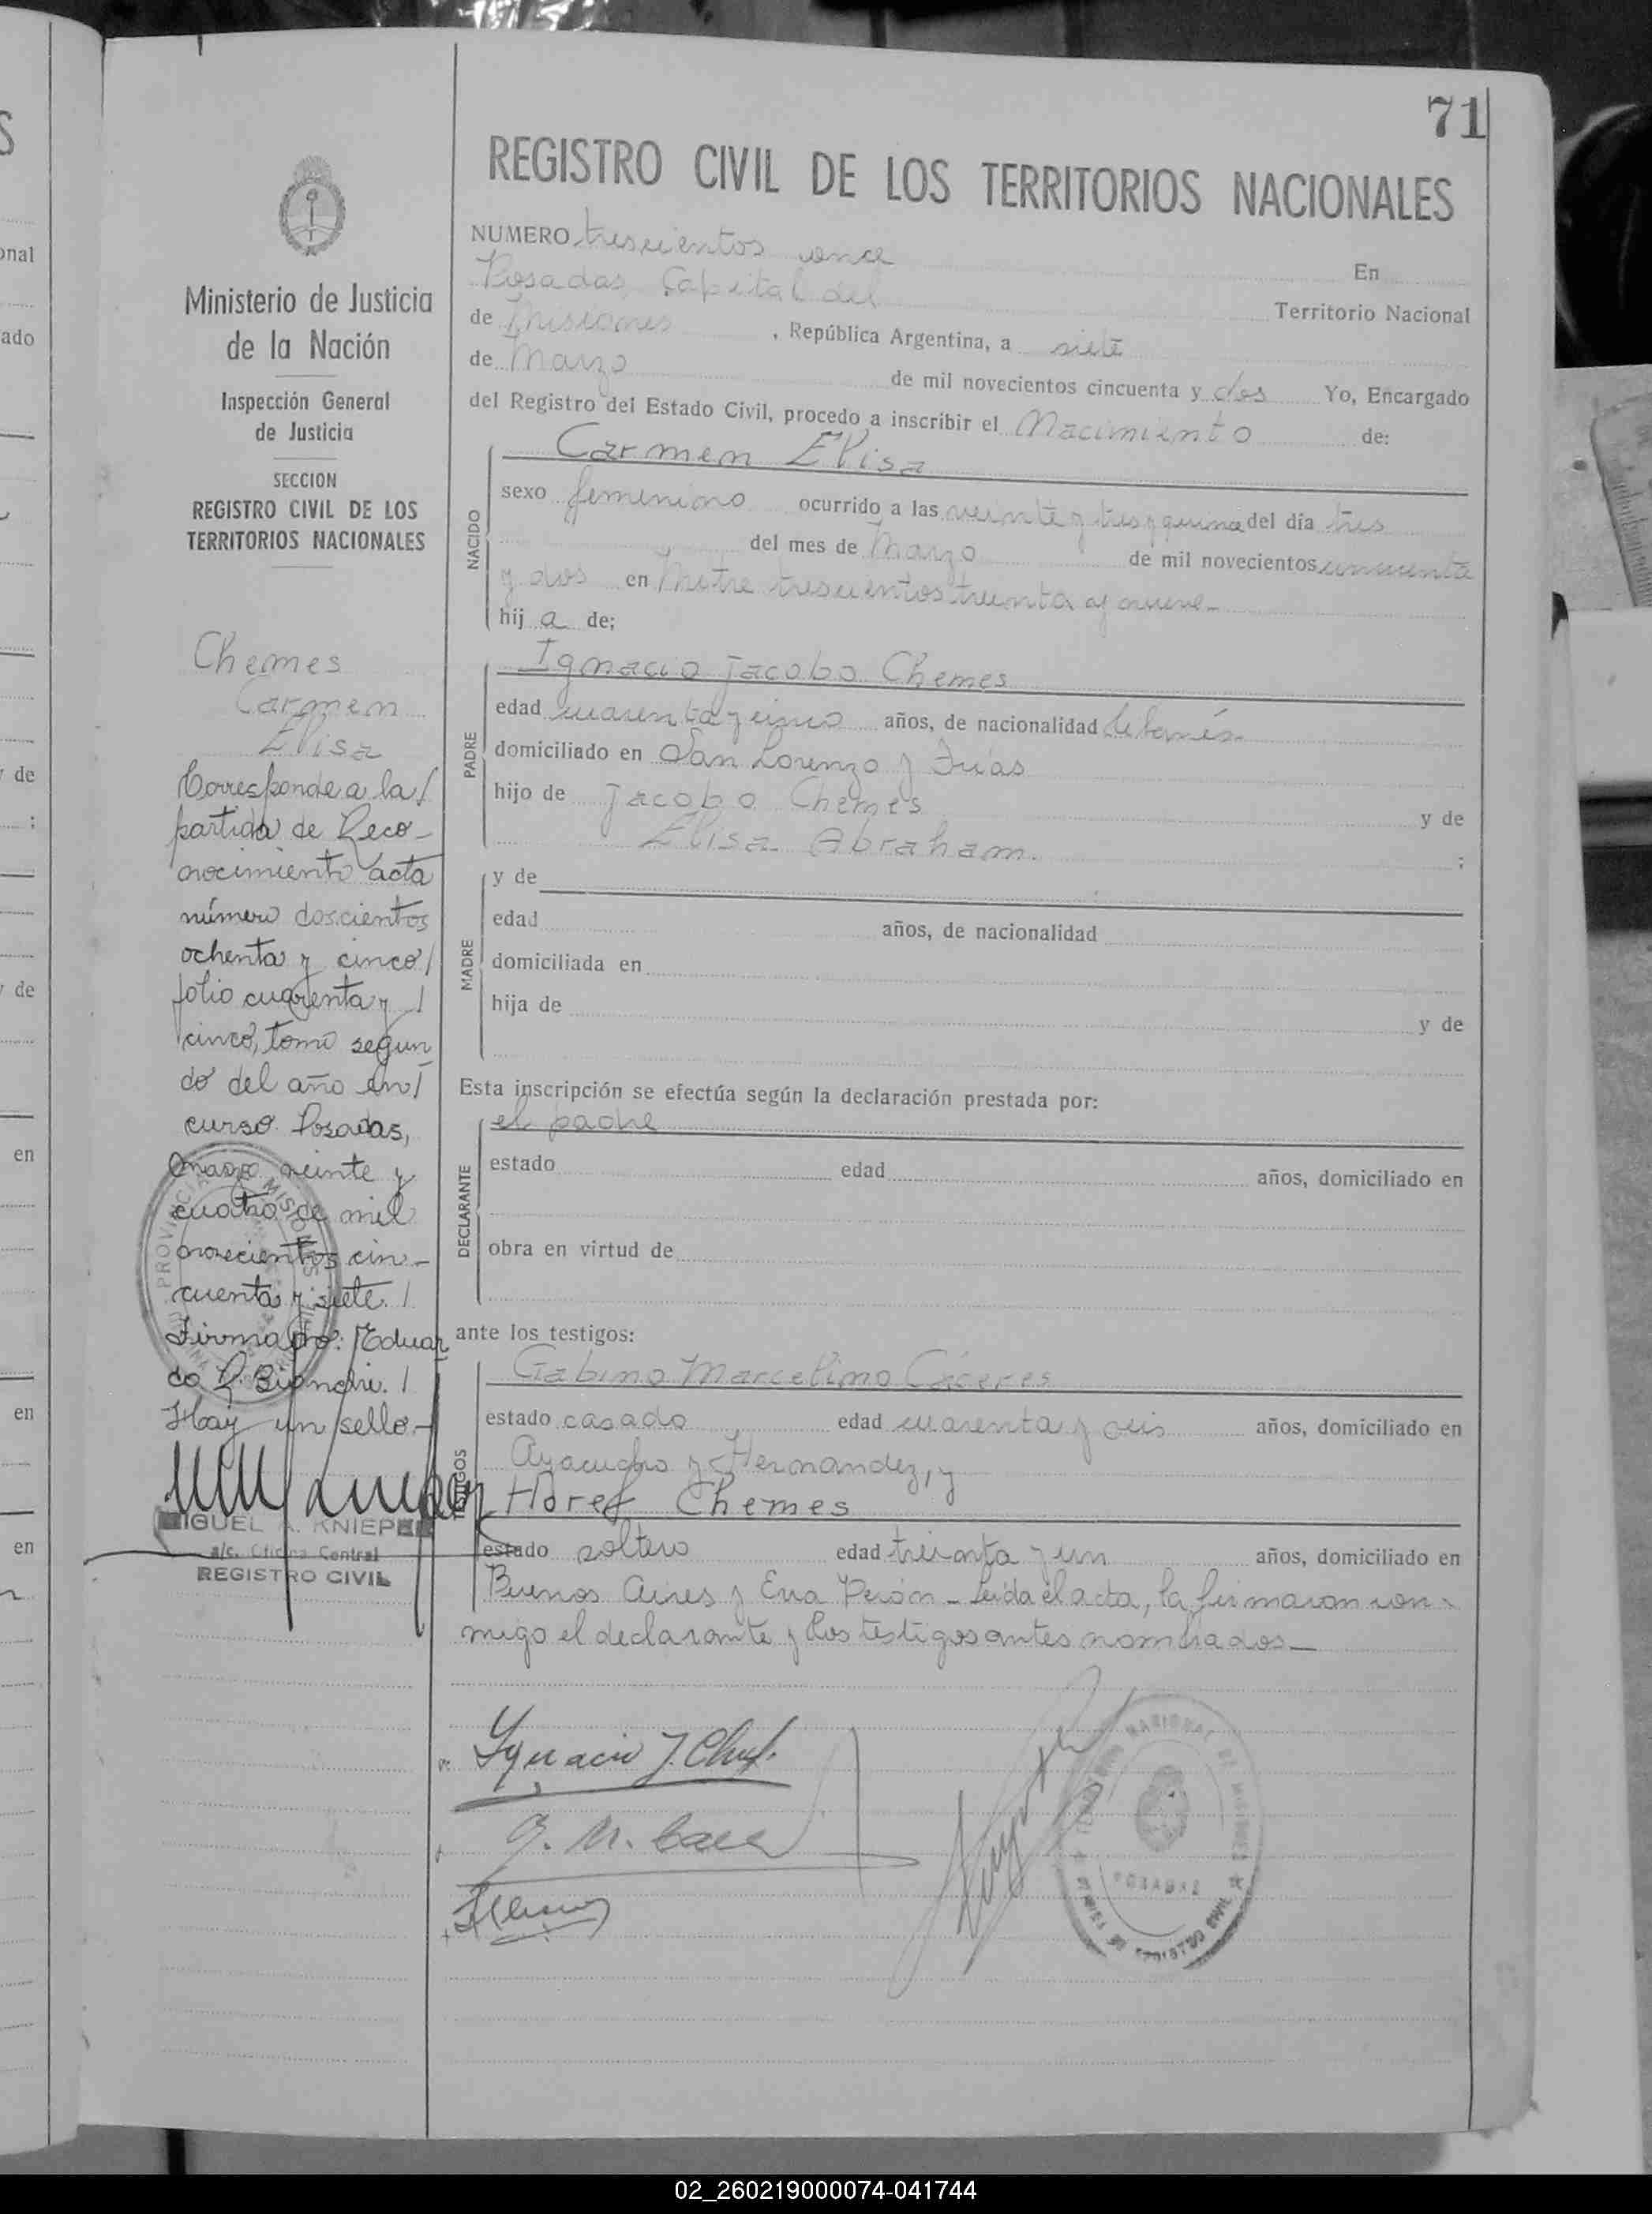 71
REGISTRO CIVIL DE LOS TERRITORIOS NACIONALES
Ministerio de Justicia
de la Nación
Inspección General
de Justicia
SECCION
REGISTRO CIVIL DE LOS
TERRITORIOS NACIONALES
Chemes
Carmen
Elisa
Corresponde a la
partida de Reco-
nocimiento acta
número doscientos
ochenta y cinco
folio cuarenta y
cinco, tomo segun
do del año en
curso. Posadas,
marzo veinte y
cuatro de mil
novecientos cin-
cuenta y siete.
Firmado: Eduar
do R. Bianchi.
Hay un sello.-
MIGUEL A. KNIEPER
a/c. Oficina Central
REGISTRO CIVIL
NUMERO trescientos once En
Posadas Capital del Territorio Nacional
de Misiones, República Argentina, a siete
de Marzo de mil novecientos cincuenta y dos Yo, Encargado
del Registro del Estado Civil, procedo a inscribir el Nacimiento de:
NACIDO
Carmen Elisa
sexo femenino ocurrido a las veinte y tres y quince del día tres
del mes de Marzo de mil novecientos cincuenta
y dos en Mitre trescientos treinta y nueve-
hij a de;
PADRE
Ignacio Jacobo Chemes
edad cuarenta y cinco años, de nacionalidad libanés-
domiciliado en San Lorenzo y Frias
hijo de Jacobo Chemes y de
Elisa Abraham. ;
MADRE
y de
edad años, de nacionalidad
domiciliada en
hija de y de
Esta inscripción se efectúa según la declaración prestada por:
DECLARANTE
el padre
estado edad años, domiciliado en
obra en virtud de
ante los testigos:
TESTIGOS
Gabino Marcelino Cáceres
estado casado edad cuarenta y seis años, domiciliado en
Ayacucho y Hernandez, y
Horef Chemes
estado soltero edad treinta y un años, domiciliado en
Buenos Aires y Eva Perón - Leida el acta, la firmaron con-
migo el declarante y los testigos antes nombrados-
Ignacio J. Ch
G. M. Cace
TERRITORIO NACIONAL DE MISIONES
POSADAS
02_260219000074-041744